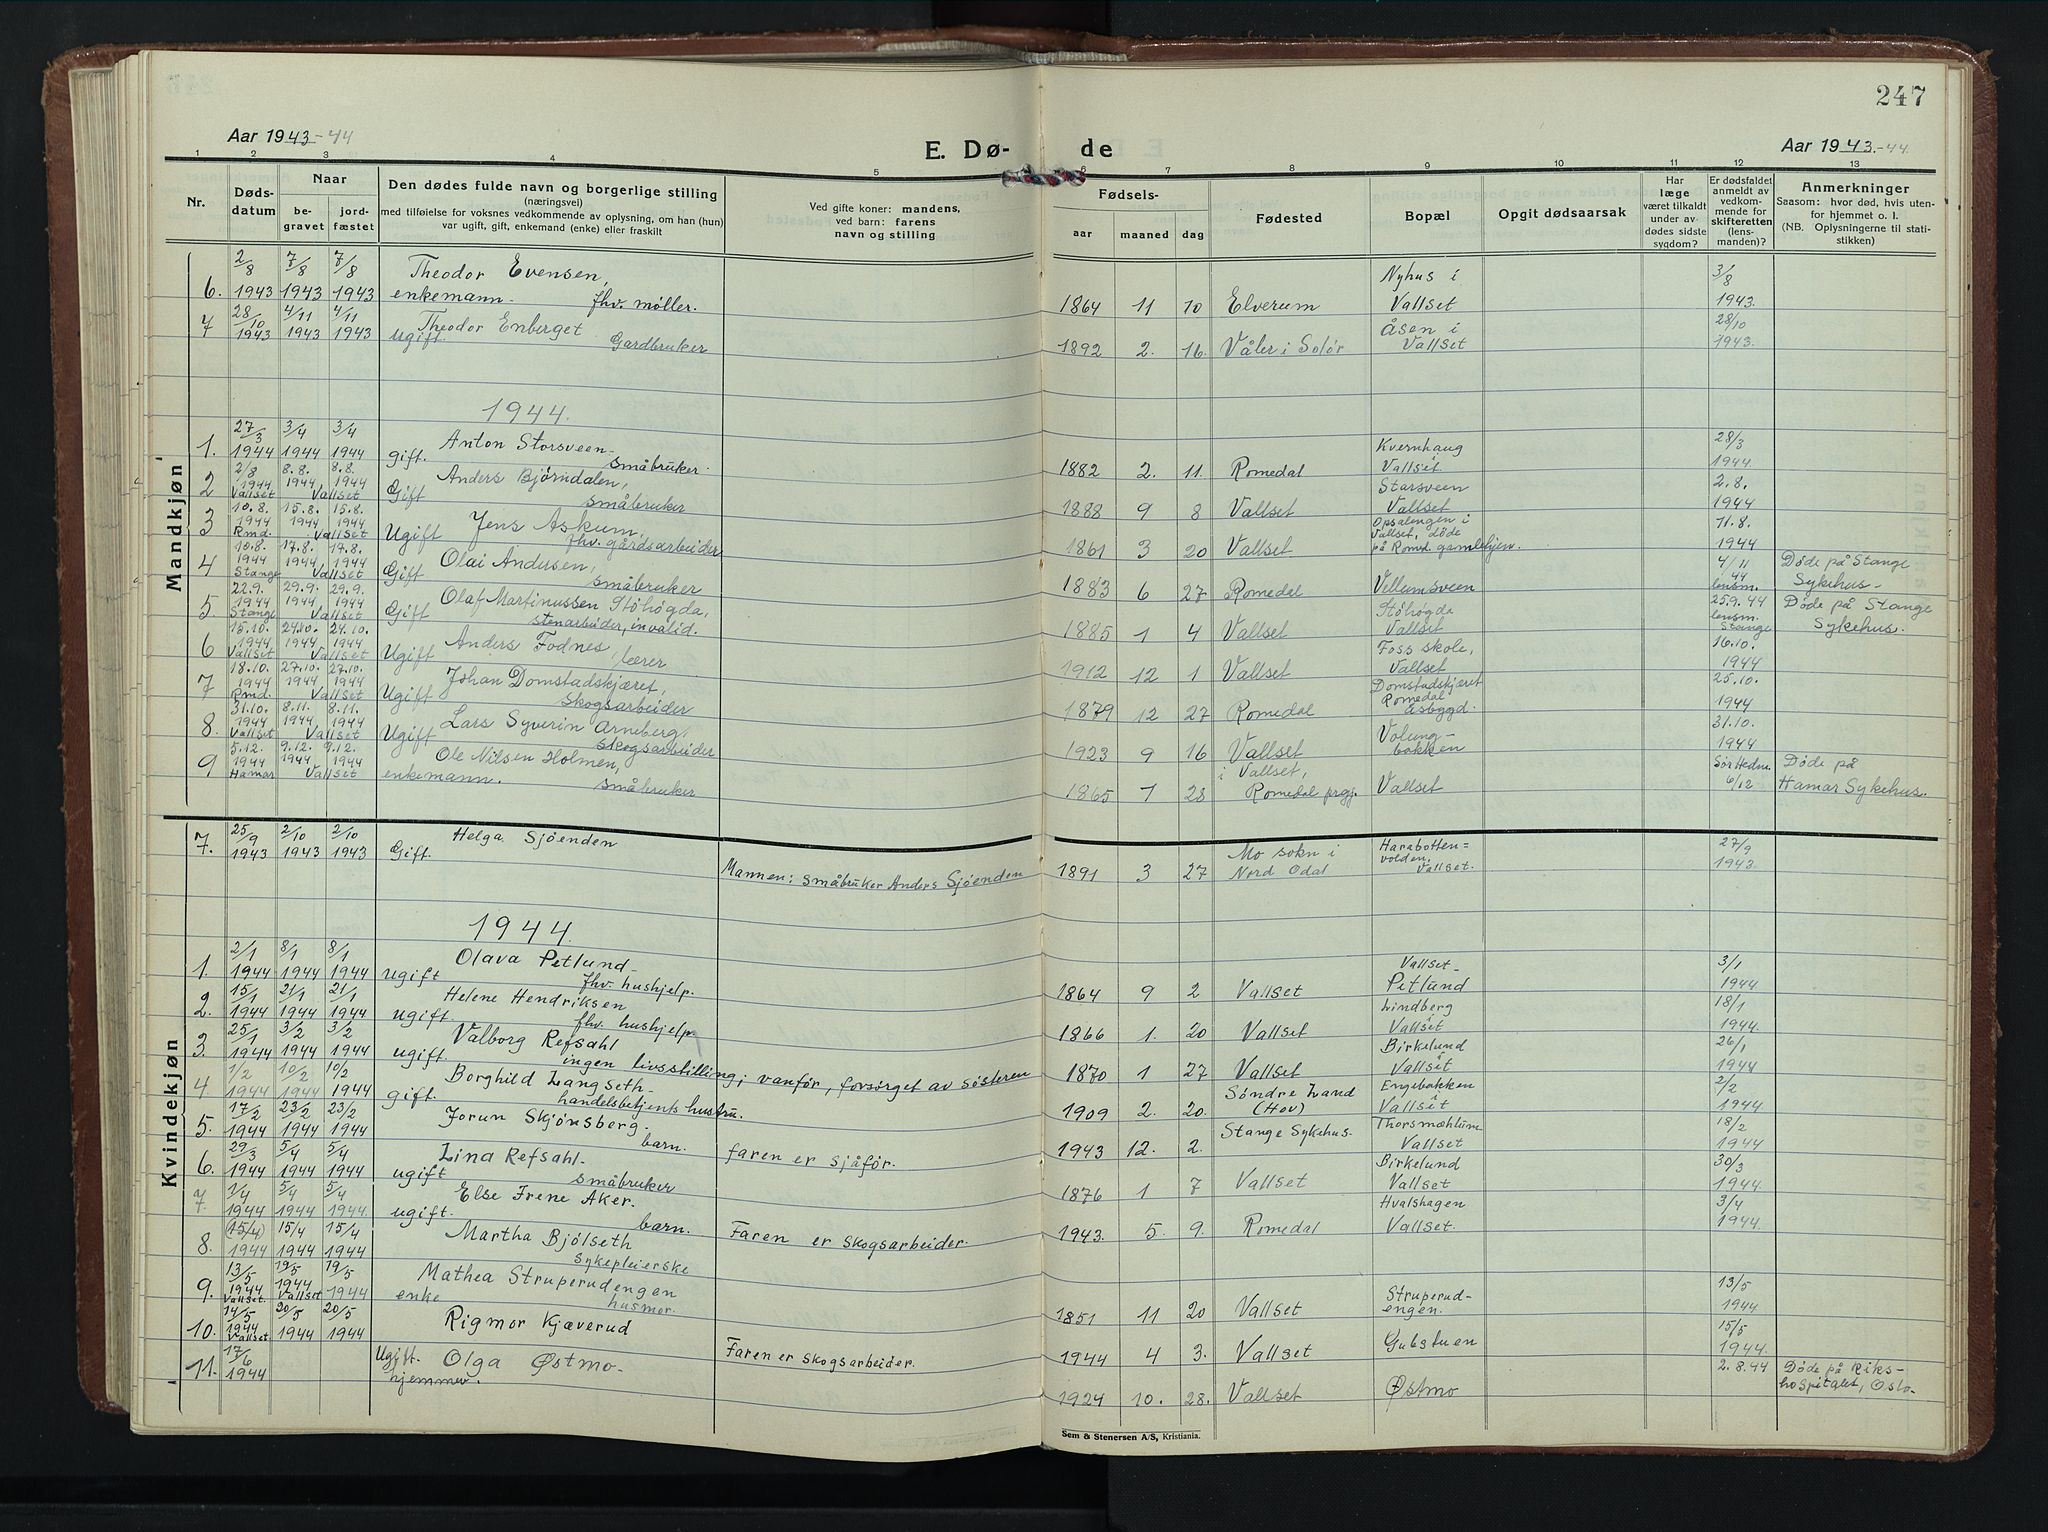 247
Aar 1943-44
E. Dø- de
Aar 1943-44
1 2 3 4 5 6 7 8 9 10 11 12 13
Nr.
Døds-
datum
Naar
be-
gravet
jord-
fæstet
Den dødes fulde navn og borgerlige stilling
(næringsvei)
med tilføielse for voksnes vedkommende av oplysning, om han (hun)
var ugift, gift, enkemand (enke) eller fraskilt
Ved gifte koner: mandens,
ved barn: farens
navn og stilling
Fødsels-
aar maaned dag
Fødested
Bopæl
Opgit dødsaarsak
Har
læge
været tilkaldt
under av-
dødes sidste
sygdom?
Er dødsfaldet
anmeldt av
vedkom-
mende for
skifteretten
(lens-
manden)?
Anmerkninger
Saasom: hvor død, hvis uten-
for hjemmet o. l.
(NB. Oplysningerne til stati-
stikken)
Mandkjøn
2/8 7/8 7/8 Theodor Evensen, Nyhus i 3/8
6. 1943 1943 1943 enkemann. fhv. møller. 1864 11 10 Elverum Vallset 1943.
28/10 4/11 4/11 Theodor Enberget Åsen i 28/10
7 1943 1943 1943 Ugift. Gardbruker 1892 2. 16. Våler i Solør Vallset 1943.
1944.
27/3 3/4 3/4 Anton Storsveen Kvernhaug 28/3
1. 1944 1944 1944 gift. småbruker. 1882 2. 11. Romedal Vallset. 1944.
2/8 8.8. 8.8. Anders Bjørndalen, Starsveen 2.8.
2 1944 1944 1944 Vallset Vallset Gift småbruker 1888 9 8 Vallset Vallset 1944
10.8. 15.8. 15.8. Jens Askum, Opsalengen i 11.8.
3 1944 1944 1944 Rmd. Vallset Ugift fhv. gårdsarbeider 1861 3 20 Vallset Vallset, døde på Romd. gamlehjem. 1944
10.8. 17.8. 17.8. Olai Andersen, 4/11 Døde på Stange
4 1944 1944 1944 Stange Vallset Gift småbruker 1883 6 27 Romedal Vellumsveen 44 lensm. Sykehus-
22.9. 29.9. 29.9. Olaf Martinussen Stöhögda, Stöhögda 25.9.44 Døde på Stange
5. 1944 1944 1944 Stange Vallset Gift stenarbeider, invalid. 1885 1 4 Vallset Vallset lensm. Stange Sykehus.
15.10. 24.10. 24.10. Anders Fodnes, Foss skole, 16.10.
6 1944 1944 1944 Vallset Vallset Ugift lærer 1912 12 1 Vallset Vallset 1944
18.10. 27.10. 27.10. Johan Domstadskjæret, Domstadskjæret 25.10.
7 1944 1944 1944 Rmd. Vallset Ugift Skogsarbeider 1879 12 27 Romedal Romedal åsbygd. 1944
31.10. 8.11. 8.11. Lars Syverin Arneberg, Volung- 31.10.
8. 1944 1944 1944 Vallset Vallset Ugift skogsarbeider 1923 9 16 Vallset bakken 1944
5.12. 9.12. 9.12. Ole Nilsen Holmen, i Vallset, Sør Hedm. Døde på
9 1944 1944 1944 Hamar Vallset enkemann. småbruker 1865 7 28 Romedal prgj. Vallset 6/12 Hamar Sykehus.
Kvindekjøn
25/9 2/10 2/10 Helga Sjøenden Mo sokn i Harabotten= 27/9
7. 1943 1943 1943 Gift. Mannen: småbruker Anders Sjøenden 1891 3 27 Nord Odal volden, Vallset. 1943.
1944.
2/1 8/1 8/1 Olava Petlund Vallset- 3/1
1. 1944 1944 1944 ugift fhv. hushjelp. 1864 9 2 Vallset Petlund 1944
15/1 21/1 21/1 Helene Hendriksen Lindberg 18/1
2. 1944 1944 1944 ugift. fhv. hushjelp. 1866 1. 20 Vallset Vallset 1944.
25/1 3/2 3/2 Valborg Refsahl Birkelund 26/1
3. 1944 1944 1944 ugift. ingen livsstilling; vanför, forsörget av søsteren 1870 1 27 Vallset Vallset 1944
1/2 10/2 10/2 Borghild Langseth Söndre Land Engebakken 2/2
4 1944 1944 1944 gift. handelsbetjents hustru. 1909 2. 20. (Hov) Vallset 1944
17/2 23/2 23/2 Jorun Skjønsberg. Stange Sykehus. Thorsmæhlum 18/2
5. 1944 1944 1944 barn. faren er sjåfør. 1943 12. 2. Vallset 1944
29/3 5/4 5/4 Lina Refsahl. Birkelund 30/3
6. 1944 1944 1944 ugift småbruker 1876 1 7 Vallset Vallset 1944.
1/4 5/4 5/4 Else Irene Aker. Hvalshagen 3/4
7. 1944 1944 1944. ugift. barn. Faren er skogsarbeider. 1943. 5. 9. Romedal Vallset. 1944.
(15/4) 15/4 15/4 Martha Bjölseth
8. 1944 1944 1944 Sykepleierske
13/5 19/5 19/5 Mathea Struperudengen Struperud- 13/5
9. 1944 1944 1944 Vallset. Vallset enke husmor. 1851 11 20 Vallset engen. 1944
14/5 20/5 20/5 Rigmor Kjæverud 15/5
10. 1944 1944 1944 Vallset. Faren er skogsarbeider. 1944 4 3. Vallset Gubstuen 1944.
17/6 Ugift. Olga Østmo 2.8.44 Døde på Riks-
11. 1944 hjemmev. 1924 10. 28. Vallset Østmo hospitalet, Oslo.
Sem & Stenersen A/S, Kristiania.